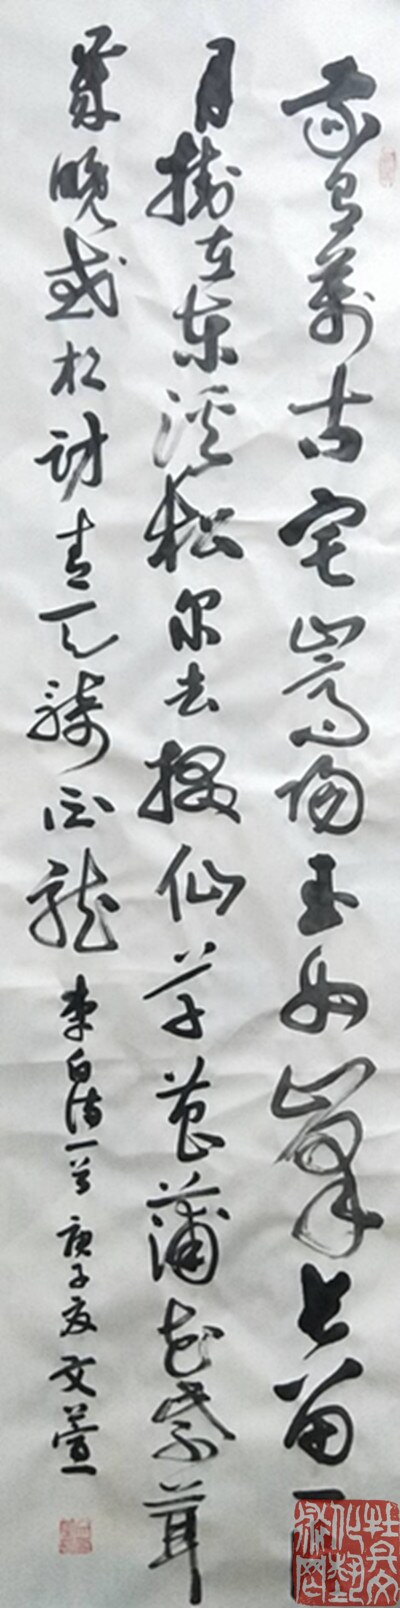 我有萬古宅嵩陽玉女峰长留一片
月掛在東溪松尔去掇仙草菖蒲花紫茸
歲晚或相訪青天騎白龍李白诗一首庚子夏文萱